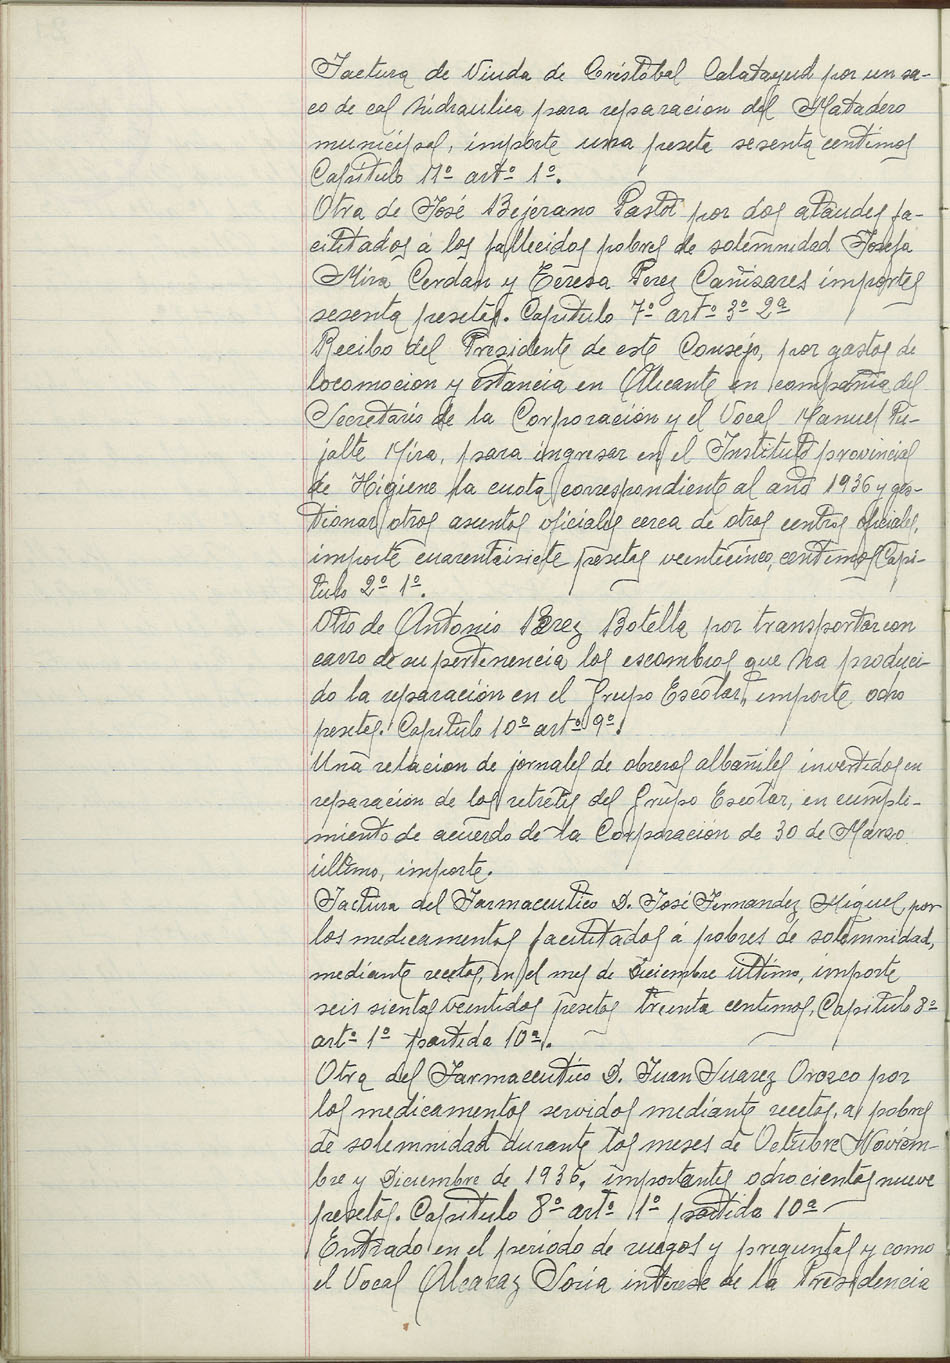 Factura de Viuda de Cristobal Calatayud por un sa-
co de cal hidraulica para reparacion del Matadero
municipal, importe una peseta sesenta centimos
Capitulo 11º artº 1º.
Otra de José Bejerano Pastor por dos ataudes fa-
cilitados á los fallecidos pobres de solemnidad Josefa
Mira Cerdan y Teresa Perez Cañisares importes
sesenta pesetas. Capitulo 7º artº 3º 2ª
Recibo del Presidente de este Consejo, por gastos de
locomocion y estancia en Alicante en compañia del
Secretario de la Corporación y el Vocal Manuel Pu-
jalte Mira, para ingresar en el Instituto provincial
de Higiene la cuota correspondiente al año 1936 y ges-
tionar otros asuntos oficiales cerca de otros centros oficiales,
importe cuarentaisiete pesetas veinticinco, centimos Capi-
tulo 2º 1º.
Otro de Antonio Pérez Botella por transportar con
carro de su pertenencia los escombros que ha produci-
do la reparación en el Grupo Escolar, importe ocho
pesetas. Capitulo 10º artº 9º.
Una relacion de jornales de obreros albañiles invertidos en
reparación de los retretes del Grupo Escolar, en cumpli-
miento de acuerdo de la Corporación de 30 de Marzo
último, importe.
Factura del Farmaceutico D. José Fernandez Miguel por
los medicamentos facilitados á pobres de solemnidad,
mediante recetas, en el mes de Diciembre último, importe
seis sientas veintidos pesetas treinta centimos, Capitulo 8º
artº 1º partida 10ª.
Otra del Farmaceutico D. Juan Suarez Orozco por
los medicamentos servidos mediante recetas, a pobres
de solemnidad durante los meses de Octubre Noviem-
bre y Diciembre de 1936, importantes ochocientas nueve
pesetas. Capitulo 8º artº 1º partida 10ª
Entrado en el periodo de ruegos y preguntas y como
el Vocal Alcaraz Soria interese de la Presidencia